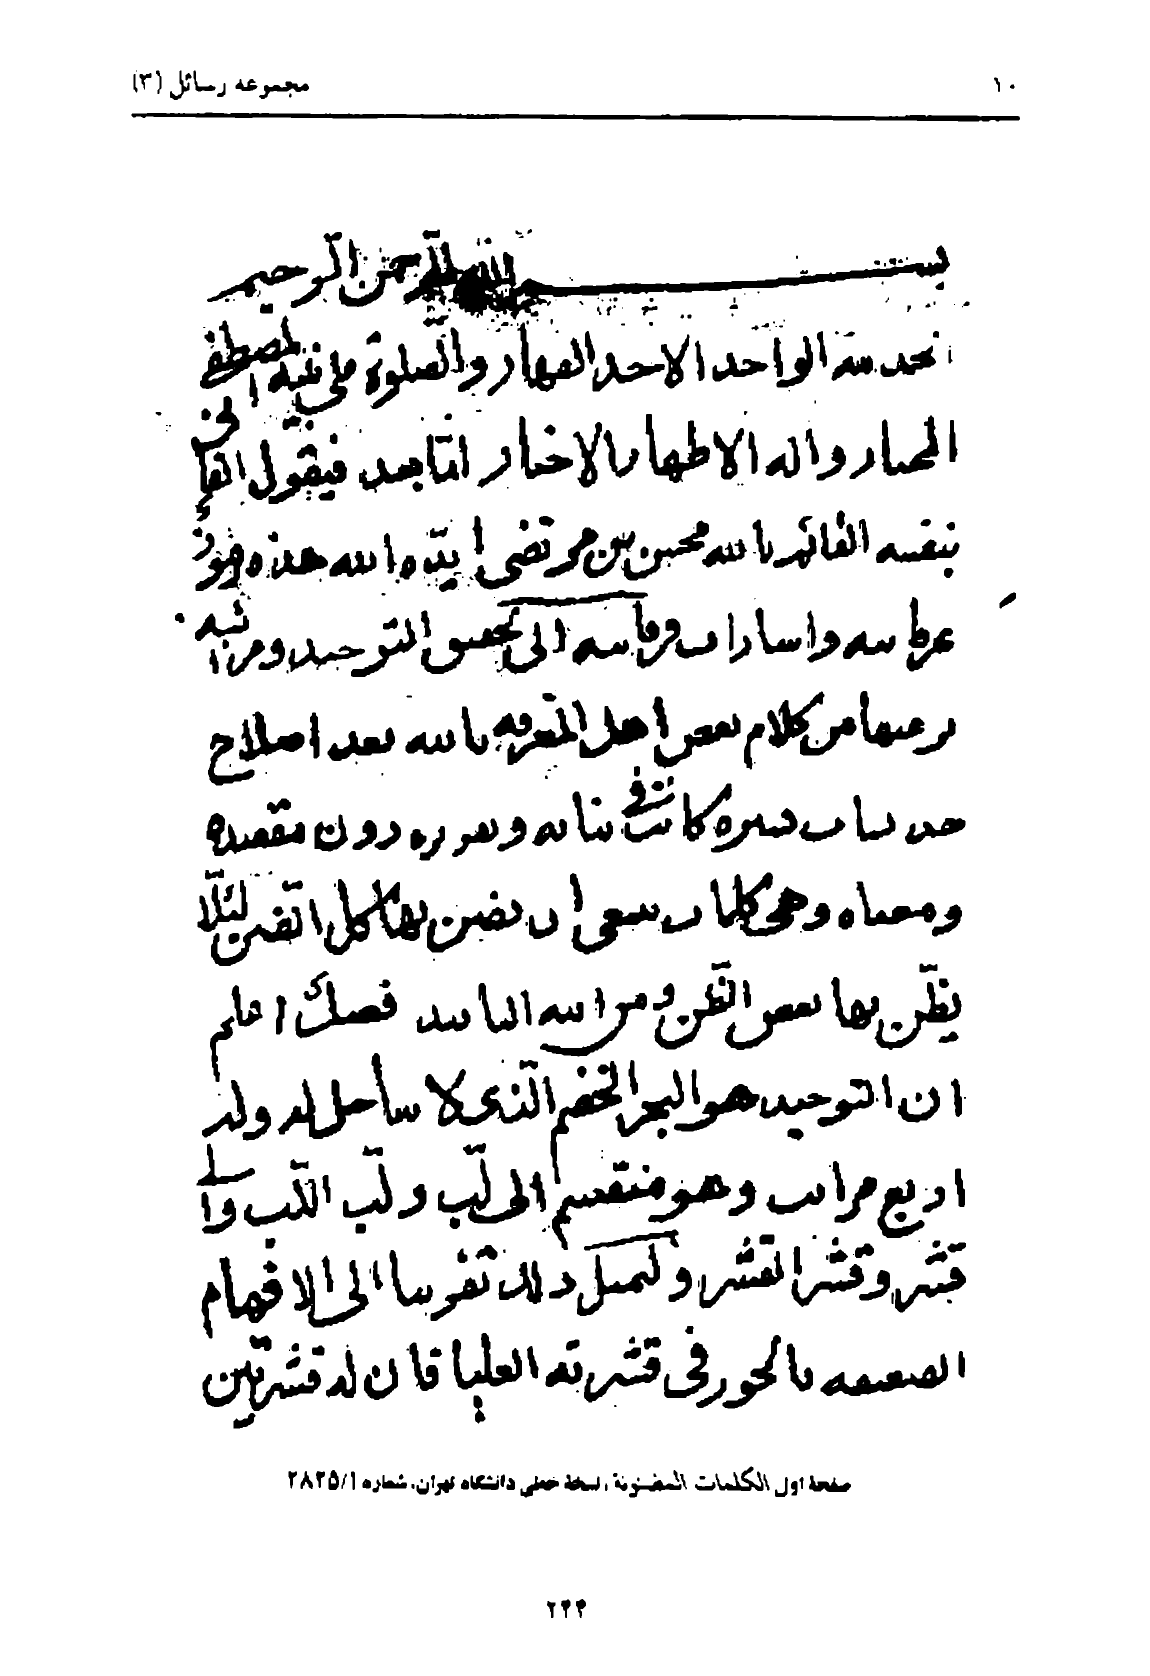 ۱۰
مجموعه رسائل (۳)
بسم الله الرحمن الرحيم
نحمد الله الواحد الاحد القهار والصلوة على نبيه المصطفى
المختار واله الاطهار الاخيار اما بعد فيقول
بنفسه الفائز بالله محسن بن مرتضى ايده الله هذه
واشارات فرقانيه الى تحقيق التوحيد ومراتبه
من كلام بعض اهل المعرفه بالله بعد اصلاح
يسيره كانت فى بيانه وتعبيره دون مقصده
ومعناه وهى كلمات ينبغى ان يضن بها كل الضن لئلا
يظن بها بعض الظن ومن الله التأييد فصل اعلم
ان التوحيد هو البحر الخضم الذى لا ساحل له وله
اربع مراتب وهو منقسم الى لب ولب اللب والى
قشر وقشر القشر وليمثل ذلك تقريبا الى الافهام
الضعيفه بالجوز فى قشرته العليا فان له قشرتين
صفحهٔ اول الکلمات المضنونة، نسخهٔ خطی دانشگاه تهران، شماره ۲۸۲۵/۱
۲۴۴